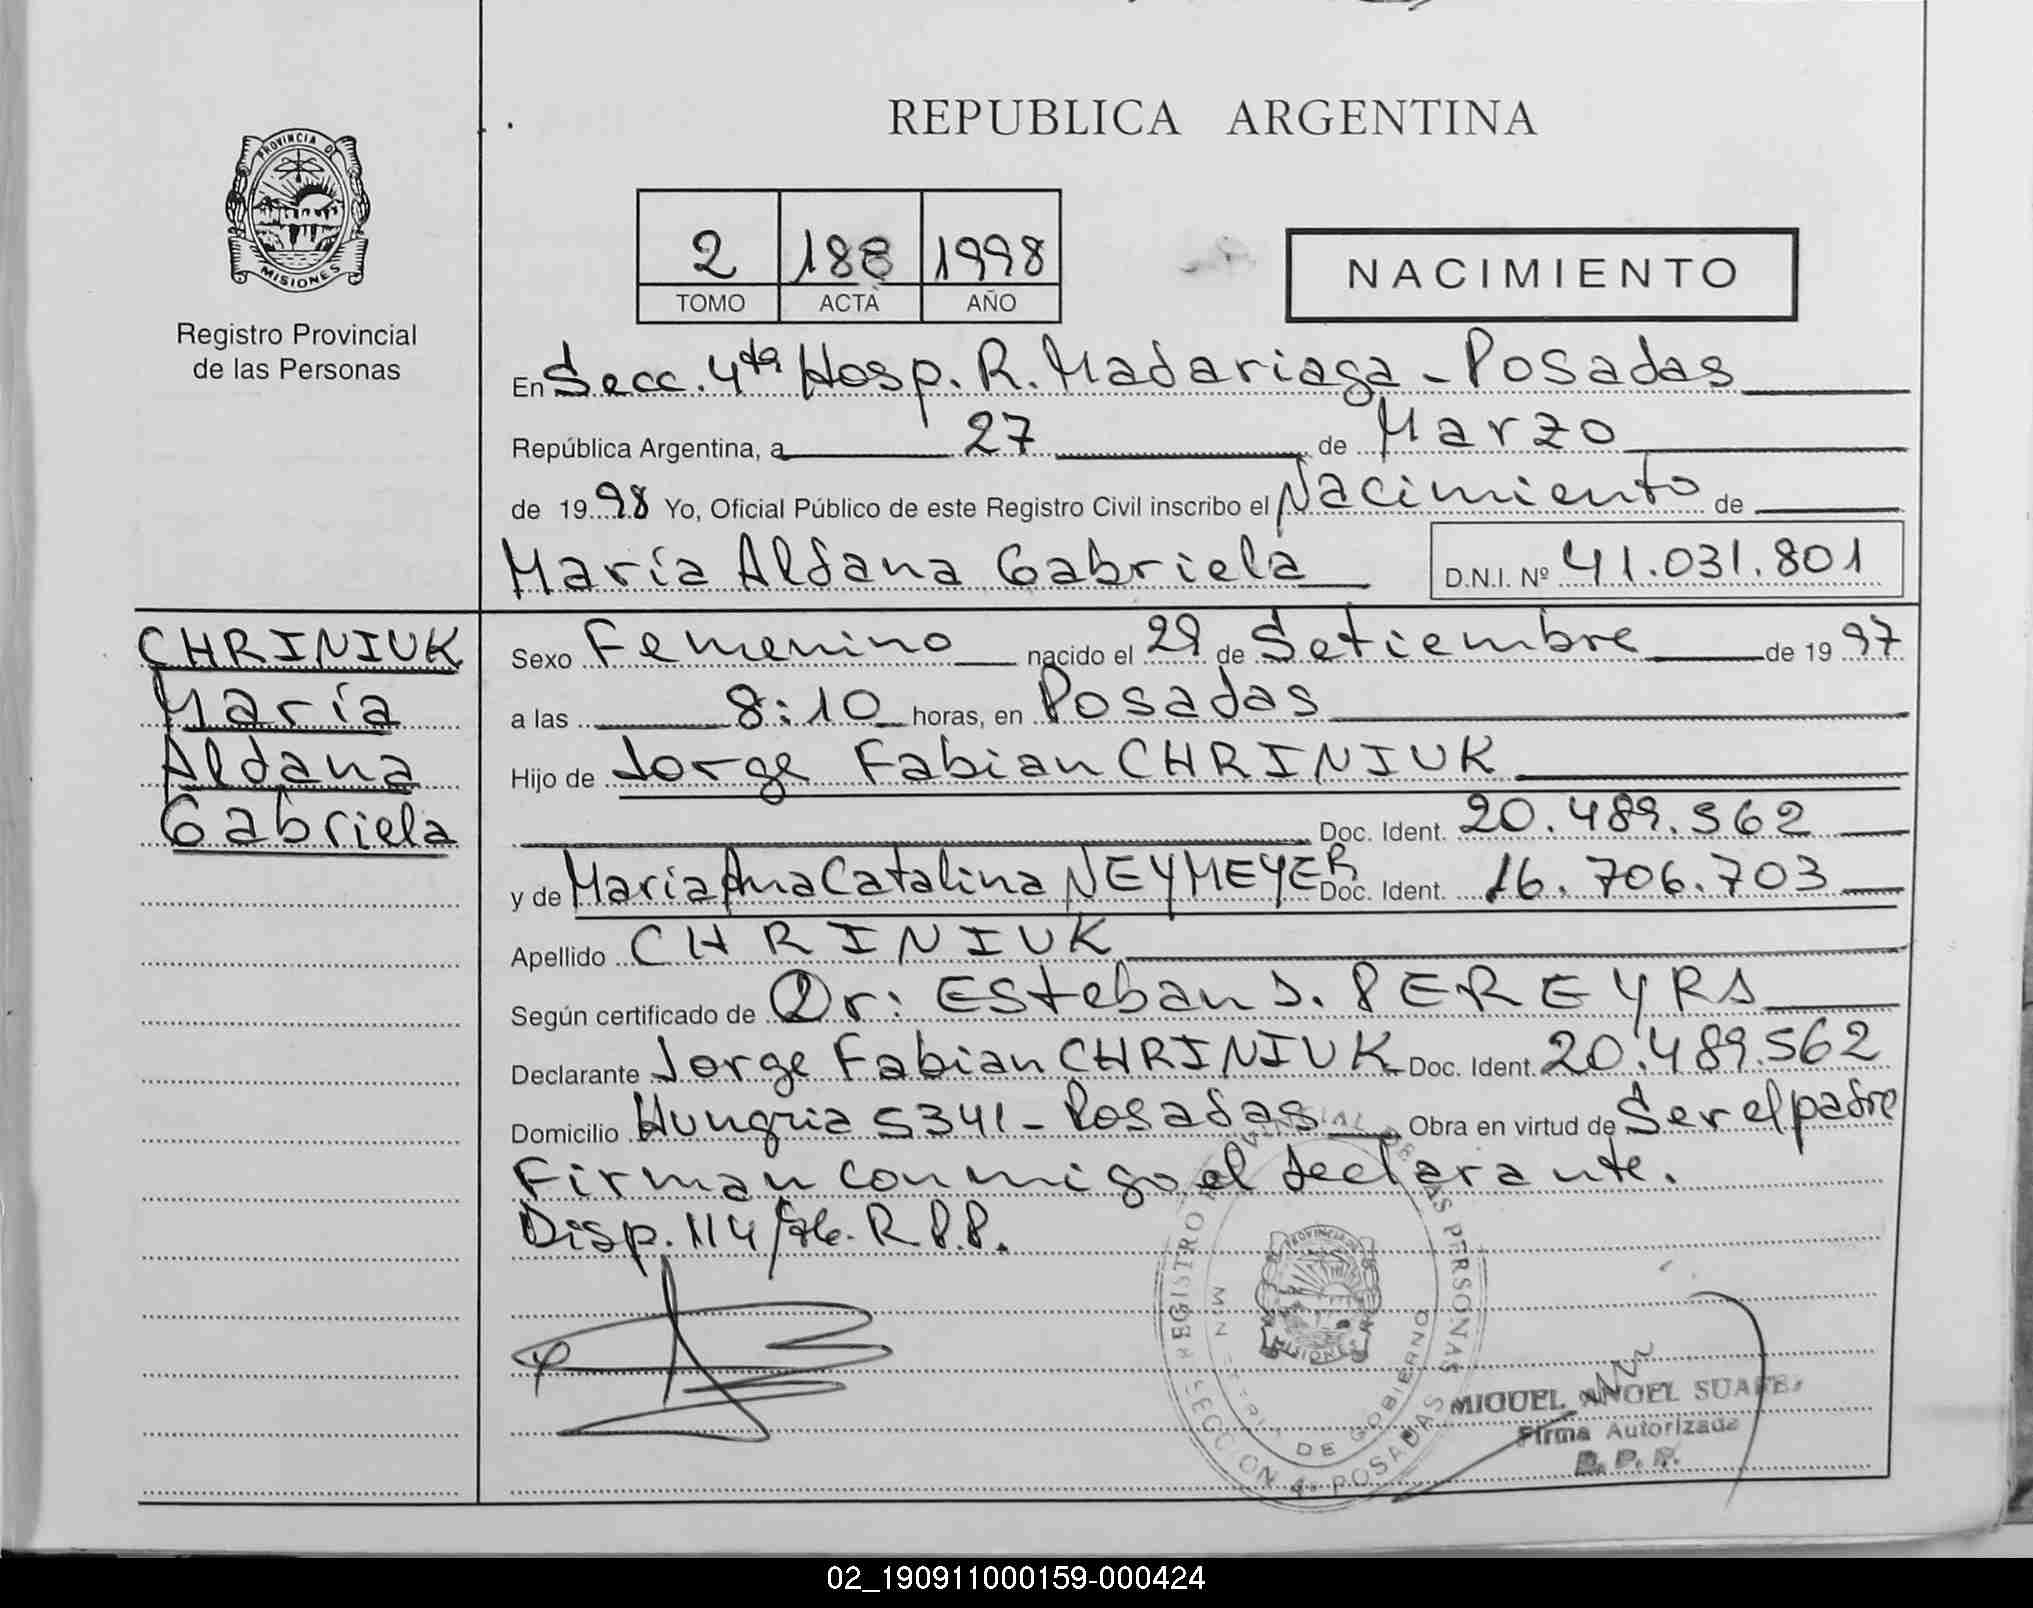 REPUBLICA ARGENTINA
PROVINCIA DE
MISIONES
Registro Provincial
de las Personas
2 188 1998
TOMO ACTA AÑO
NACIMIENTO
En Secc. 4ta Hosp. R. Madariaga - Posadas
República Argentina, a 27 de Marzo
de 19 98 Yo, Oficial Público de este Registro Civil inscribo el Nacimiento de
María Aldana Gabriela D.N.I. Nº 41.031.801
CHRINIUK
María
Aldana
Gabriela
Sexo Femenino nacido el 29 de Setiembre de 19 97
a las 8:10 horas, en Posadas
Hijo de Jorge Fabian CHRINIUK
Doc. Ident. 20.489.562
y de María Ana Catalina NEYMEYER Doc. Ident. 16.706.703
Apellido CHRINIUK
Según certificado de Dr: Esteban J. PEREYRA
Declarante Jorge Fabian CHRINIUK Doc. Ident. 20.489.562
Domicilio Hungria 5341 - Posadas Obra en virtud de Ser el padre
Firman conmigo el declarante.
Disp. 114/76. R.P.P.
REGISTRO PERSONAS
DE GOBIERNO
SECCION 4a POSADAS
MISIONES
MIGUEL ANGEL
Firma Autorizada
R. P. P.
02_190911000159-000424